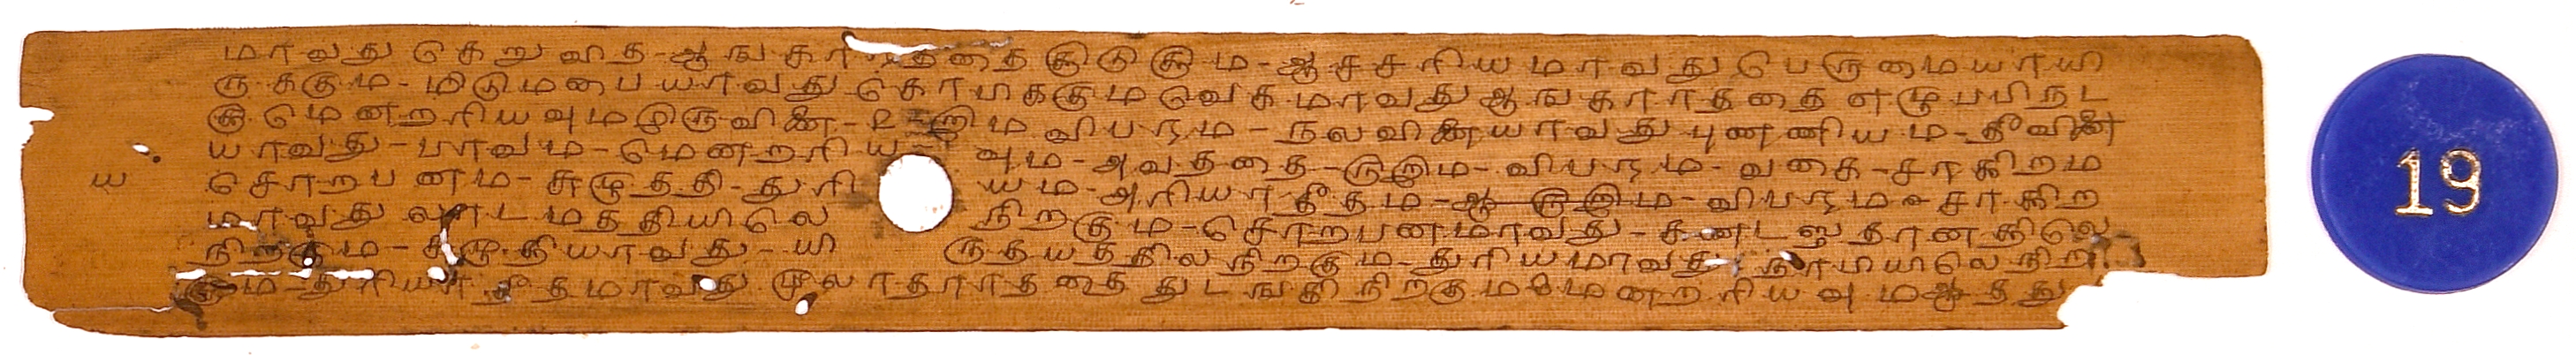 மாவது கெறுவித-ஆங்கா த்தை ம-ஆச்சரியமாவது பெருமையாயி
ருக்கும-மிடுமபை யாவது கொபக்கும வெகமாவது ஆங்காரத்தை எழுபபிநட
மென்றறியவுமஇருவினை-உ விபரம-நலவினையாவது புணணியம-தீவினை
யாவது-பாவம-மென்றறிய வும-அவத்தை-ரு விபரம-வகை-சாககிறம
சொறபனம-சுழுத்தி-துரி யம-அரியாதீதம- விபரம சாககிற
மாவது லாடமத்தியிலெ நிறகும-சொறபனமாவது-கணடஸ்தானத்திலெ
நிறகும-சுழுத்தியாவது-யி ருதயத்தில நிறகும-துரியமாவது நாபியிலெ நிற
கும-துரியாதீதமாவது மூலாதாரத்தை துடஙகி நிறகுமமென்றறியவும
ய
19